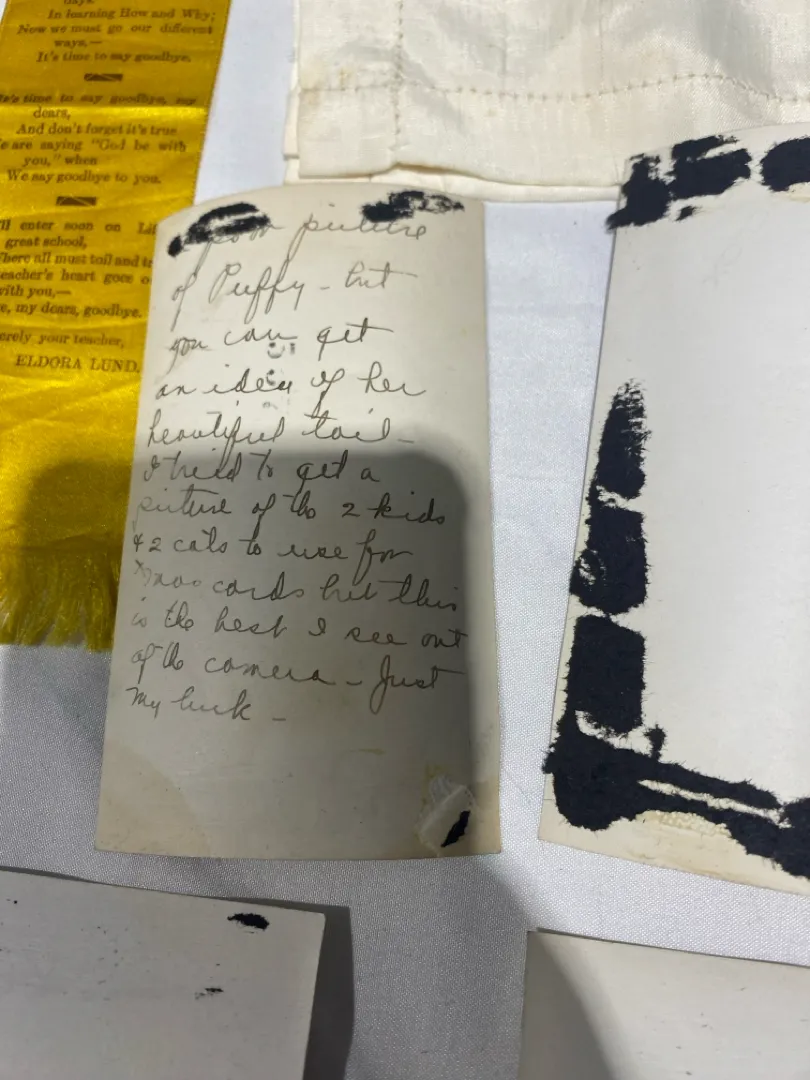 days.
In learning How and Why;
Now we must go our different
ways,—
It's time to say goodbye.
It's time to say goodbye, my
dears,
And don't forget it's true
We are saying "God be with
you," when
We say goodbye to you.
enter soon on
great school,
all must toil and
teacher's heart goes
with you,—
my dears, goodbye.
your teacher,
ELDORA LUND.
poor picture
of Puffy - but
you can get
an idea of her
beautiful tail -
I tried to get a
picture of the 2 kids
+ 2 cats to use for
Xmas cards but this
is the best I see out
of the camera - Just
My luck -